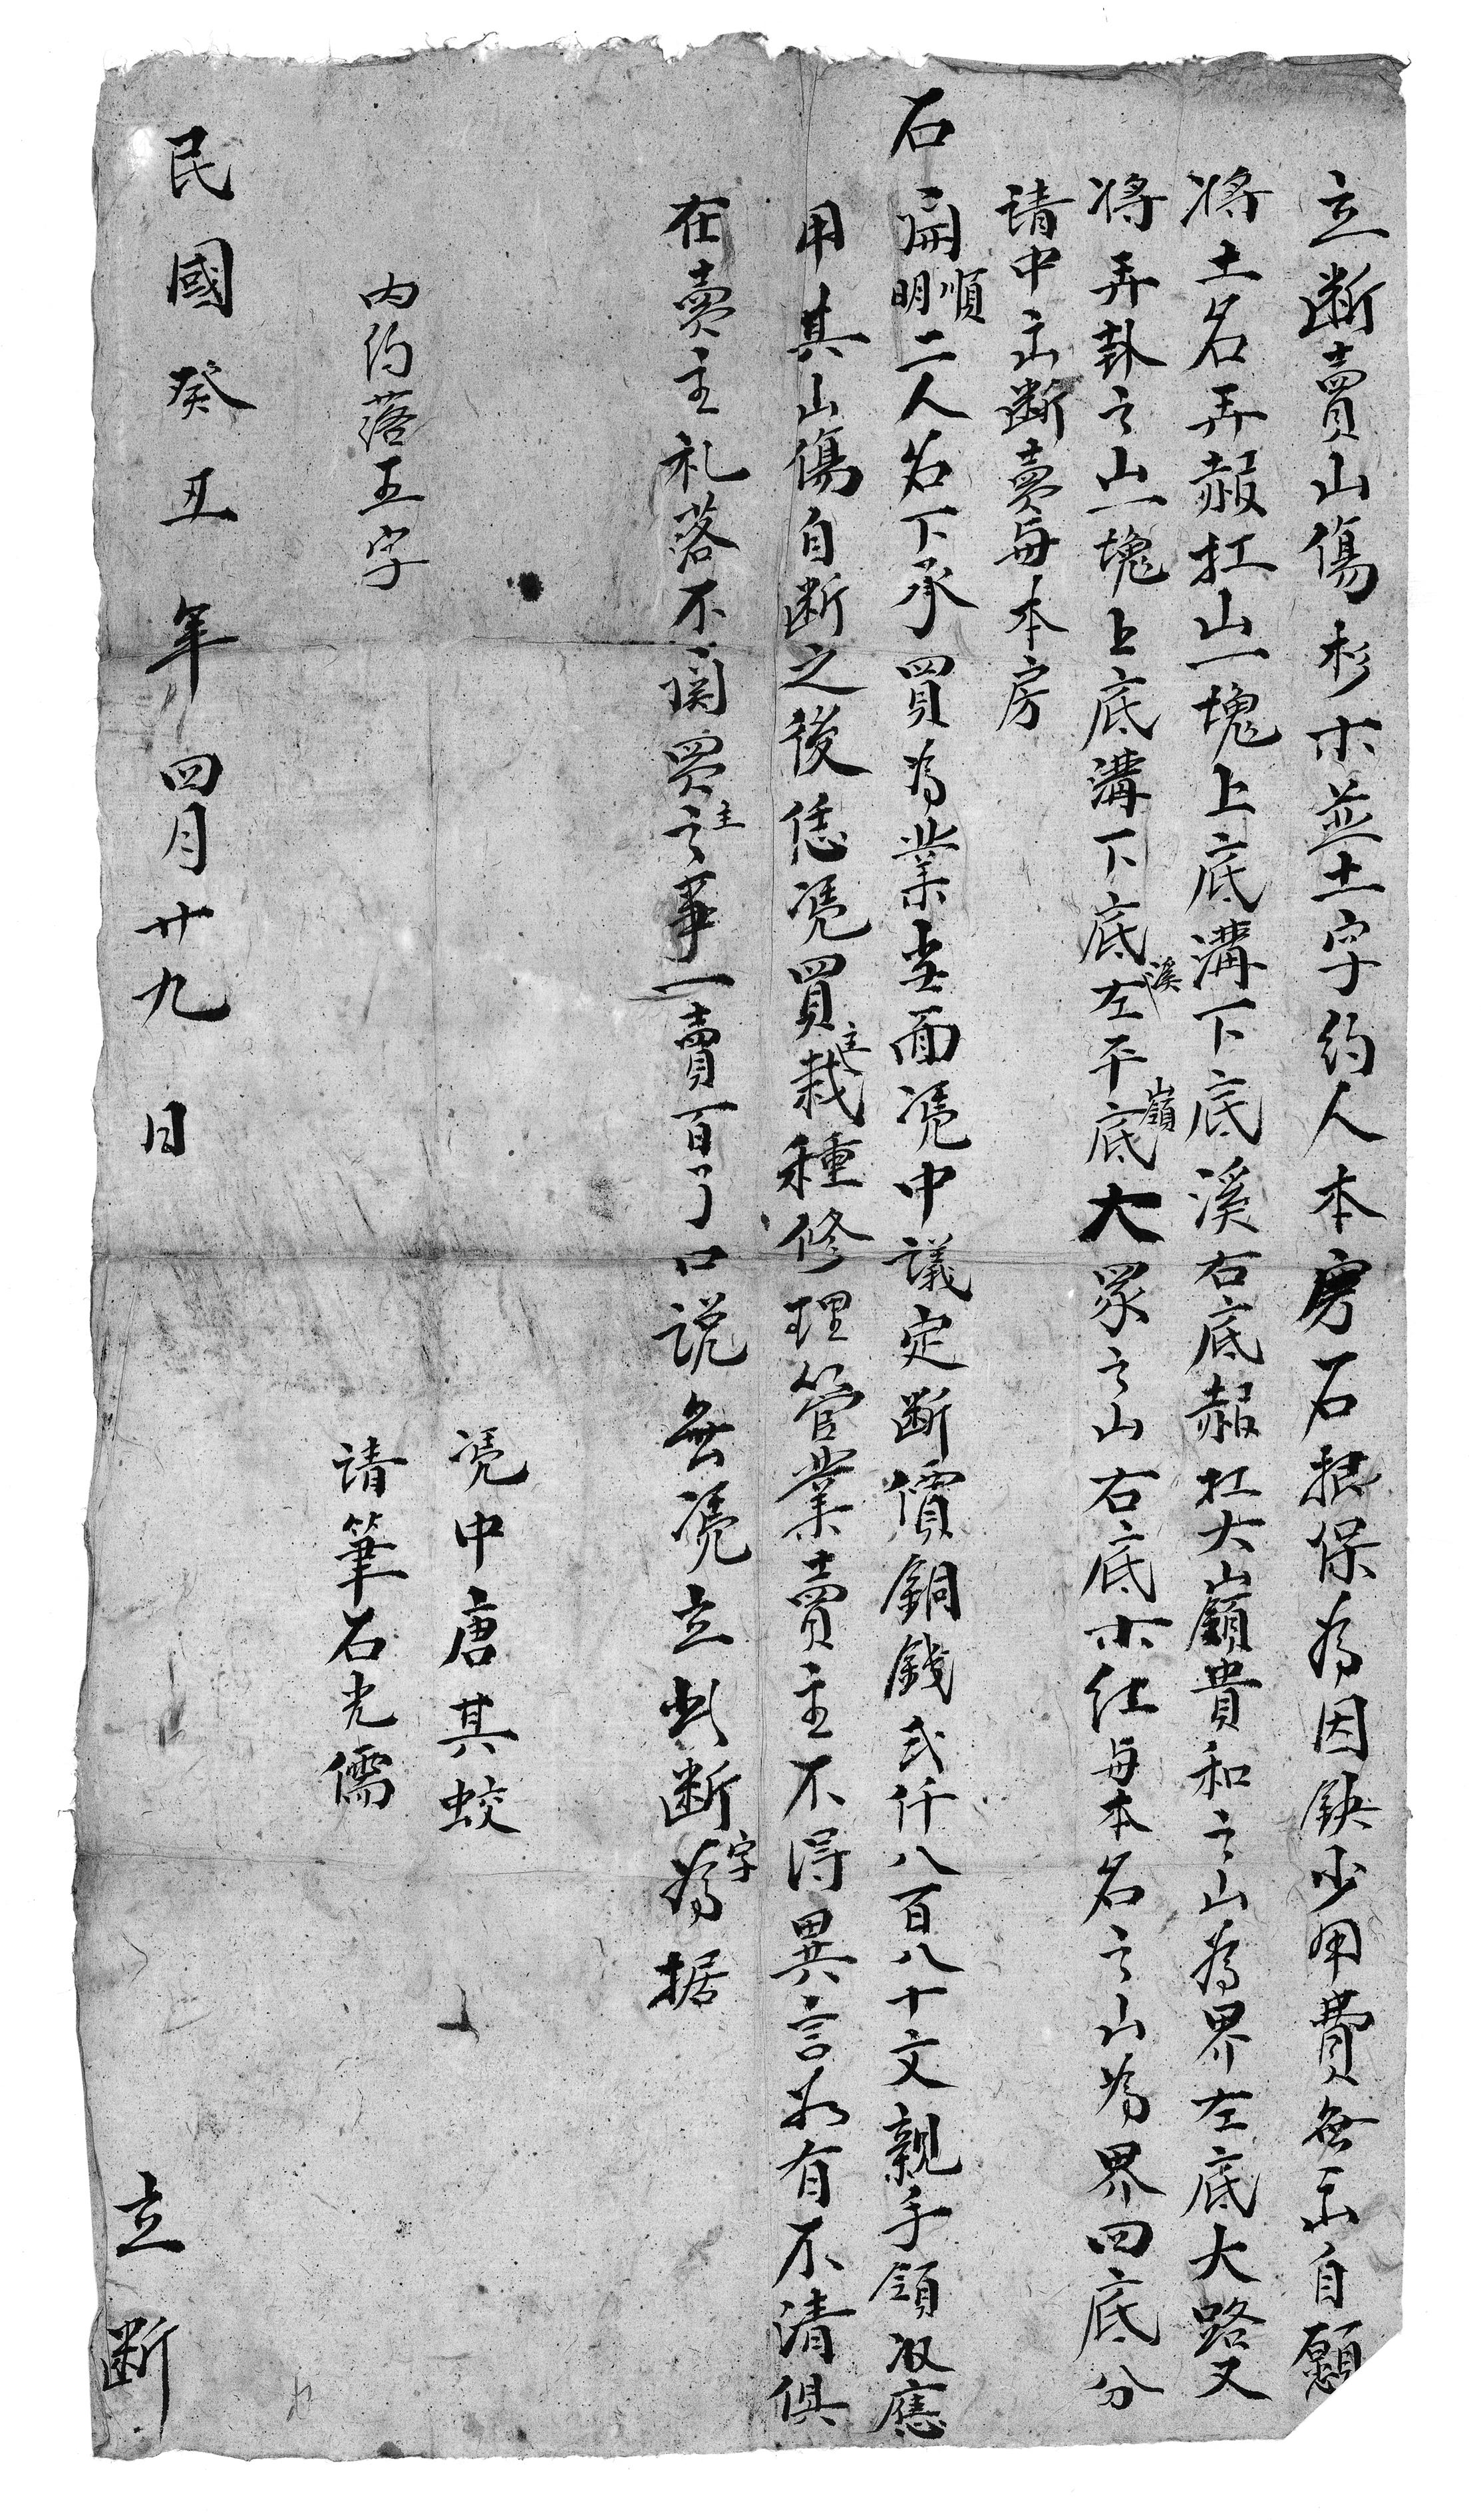 立断賣山傷杉木並土字約人本房石根保為因缺少用費無示自願
將土名弄赧扛山一塊上底溝下底溪右底赧扛大嶺貴和之山為界左底大路又
將弄卦之山一塊上底溝下底溪左平底嶺大眾之山右底木仕每本名之山為界四底分
請中立断賣每本房
石開順明二人名下承買為業当面凴中議定断價銅錢弍仟八百八十文親手領收應
用其山傷自断之後恁凴買主栽種修理管業賣主不得異言若有不清俱
在賣主礼落不関買主之事一賣百了口説無凴立此断字為据
凴中唐其蛟
内約落五字
請筆石光儒
民國癸丑年四月廿九日 立断